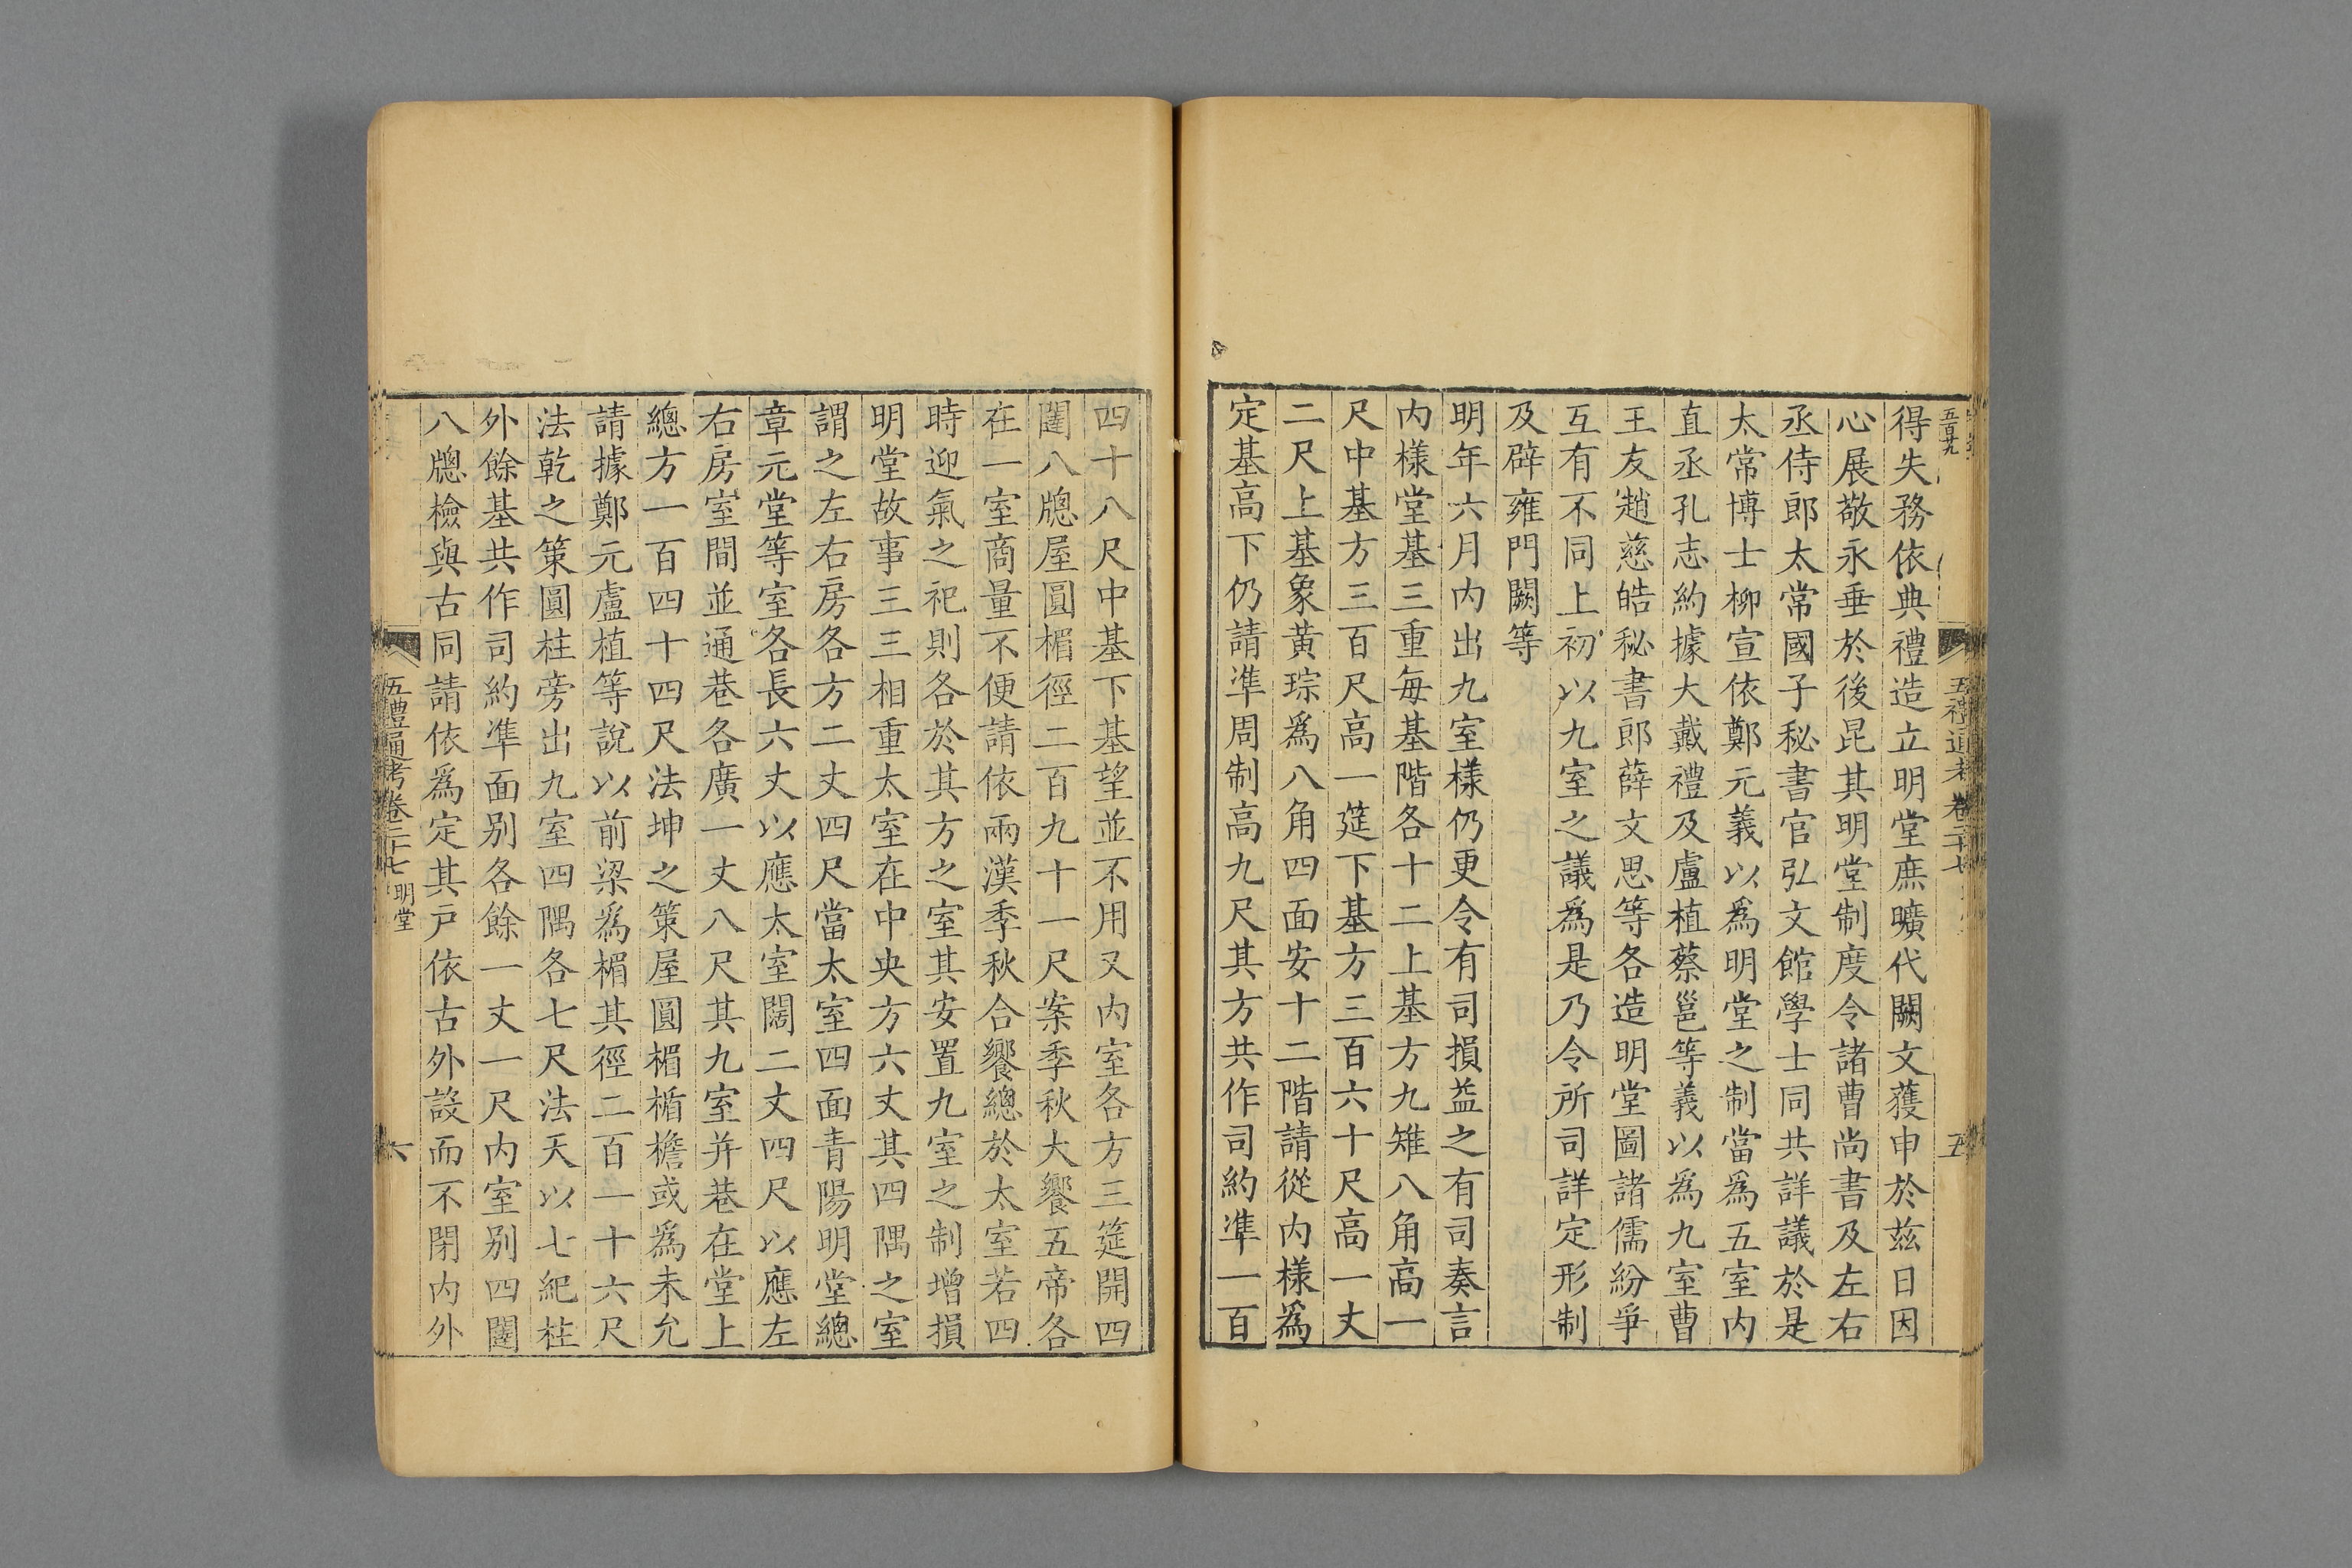 五百九
五禮通考卷二十七
五
得失務依典禮造立明堂庶曠代闕文獲申於茲日因
心展敬永垂於後昆其明堂制度令諸曹尚書及左右
丞侍郎太常國子秘書官弘文館學士同共詳議於是
太常博士柳宣依鄭元義以爲明堂之制當爲五室內
直丞孔志約據大戴禮及盧植蔡邕等義以爲九室曹
王友趙慈皓秘書郎薛文思等各造明堂圖諸儒紛爭
互有不同上初以九室之議爲是乃令所司詳定形制
及辟雍門闕等
明年六月內出九室樣仍更令有司損益之有司奏言
內樣堂基三重每基階各十二上基方九雉八角高一
尺中基方三百尺高一筵下基方三百六十尺高一丈
二尺上基象黃琮爲八角四面安十二階請從內樣爲
定基高下仍請準周制高九尺其方共作司約準一百
四十八尺中基下基望並不用又內室各方三筵開四
闥八牕屋圓楣徑二百九十一尺案季秋大饗五帝各
在一室商量不便請依兩漢季秋合饗總於太室若四
時迎氣之祀則各於其方之室其安置九室之制增損
明堂故事三三相重太室在中央方六丈其四隅之室
謂之左右房各方二丈四尺當太室四面青陽明堂總
章元堂等室各長六丈以應太室闊二丈四尺以應左
右房室間並通巷各廣一丈八尺其九室并巷在堂上
總方一百四十四尺法坤之策屋圓楣楯檐或爲未允
請據鄭元盧植等說以前梁爲楣其徑二百一十六尺
法乾之策圓柱旁出九室四隅各七尺法天以七紀柱
外餘基共作司約準面別各餘一丈一尺內室別四闥
八牕檢與古同請依爲定其戶依古外設而不閉內外
五禮通考卷二十七 明堂
六